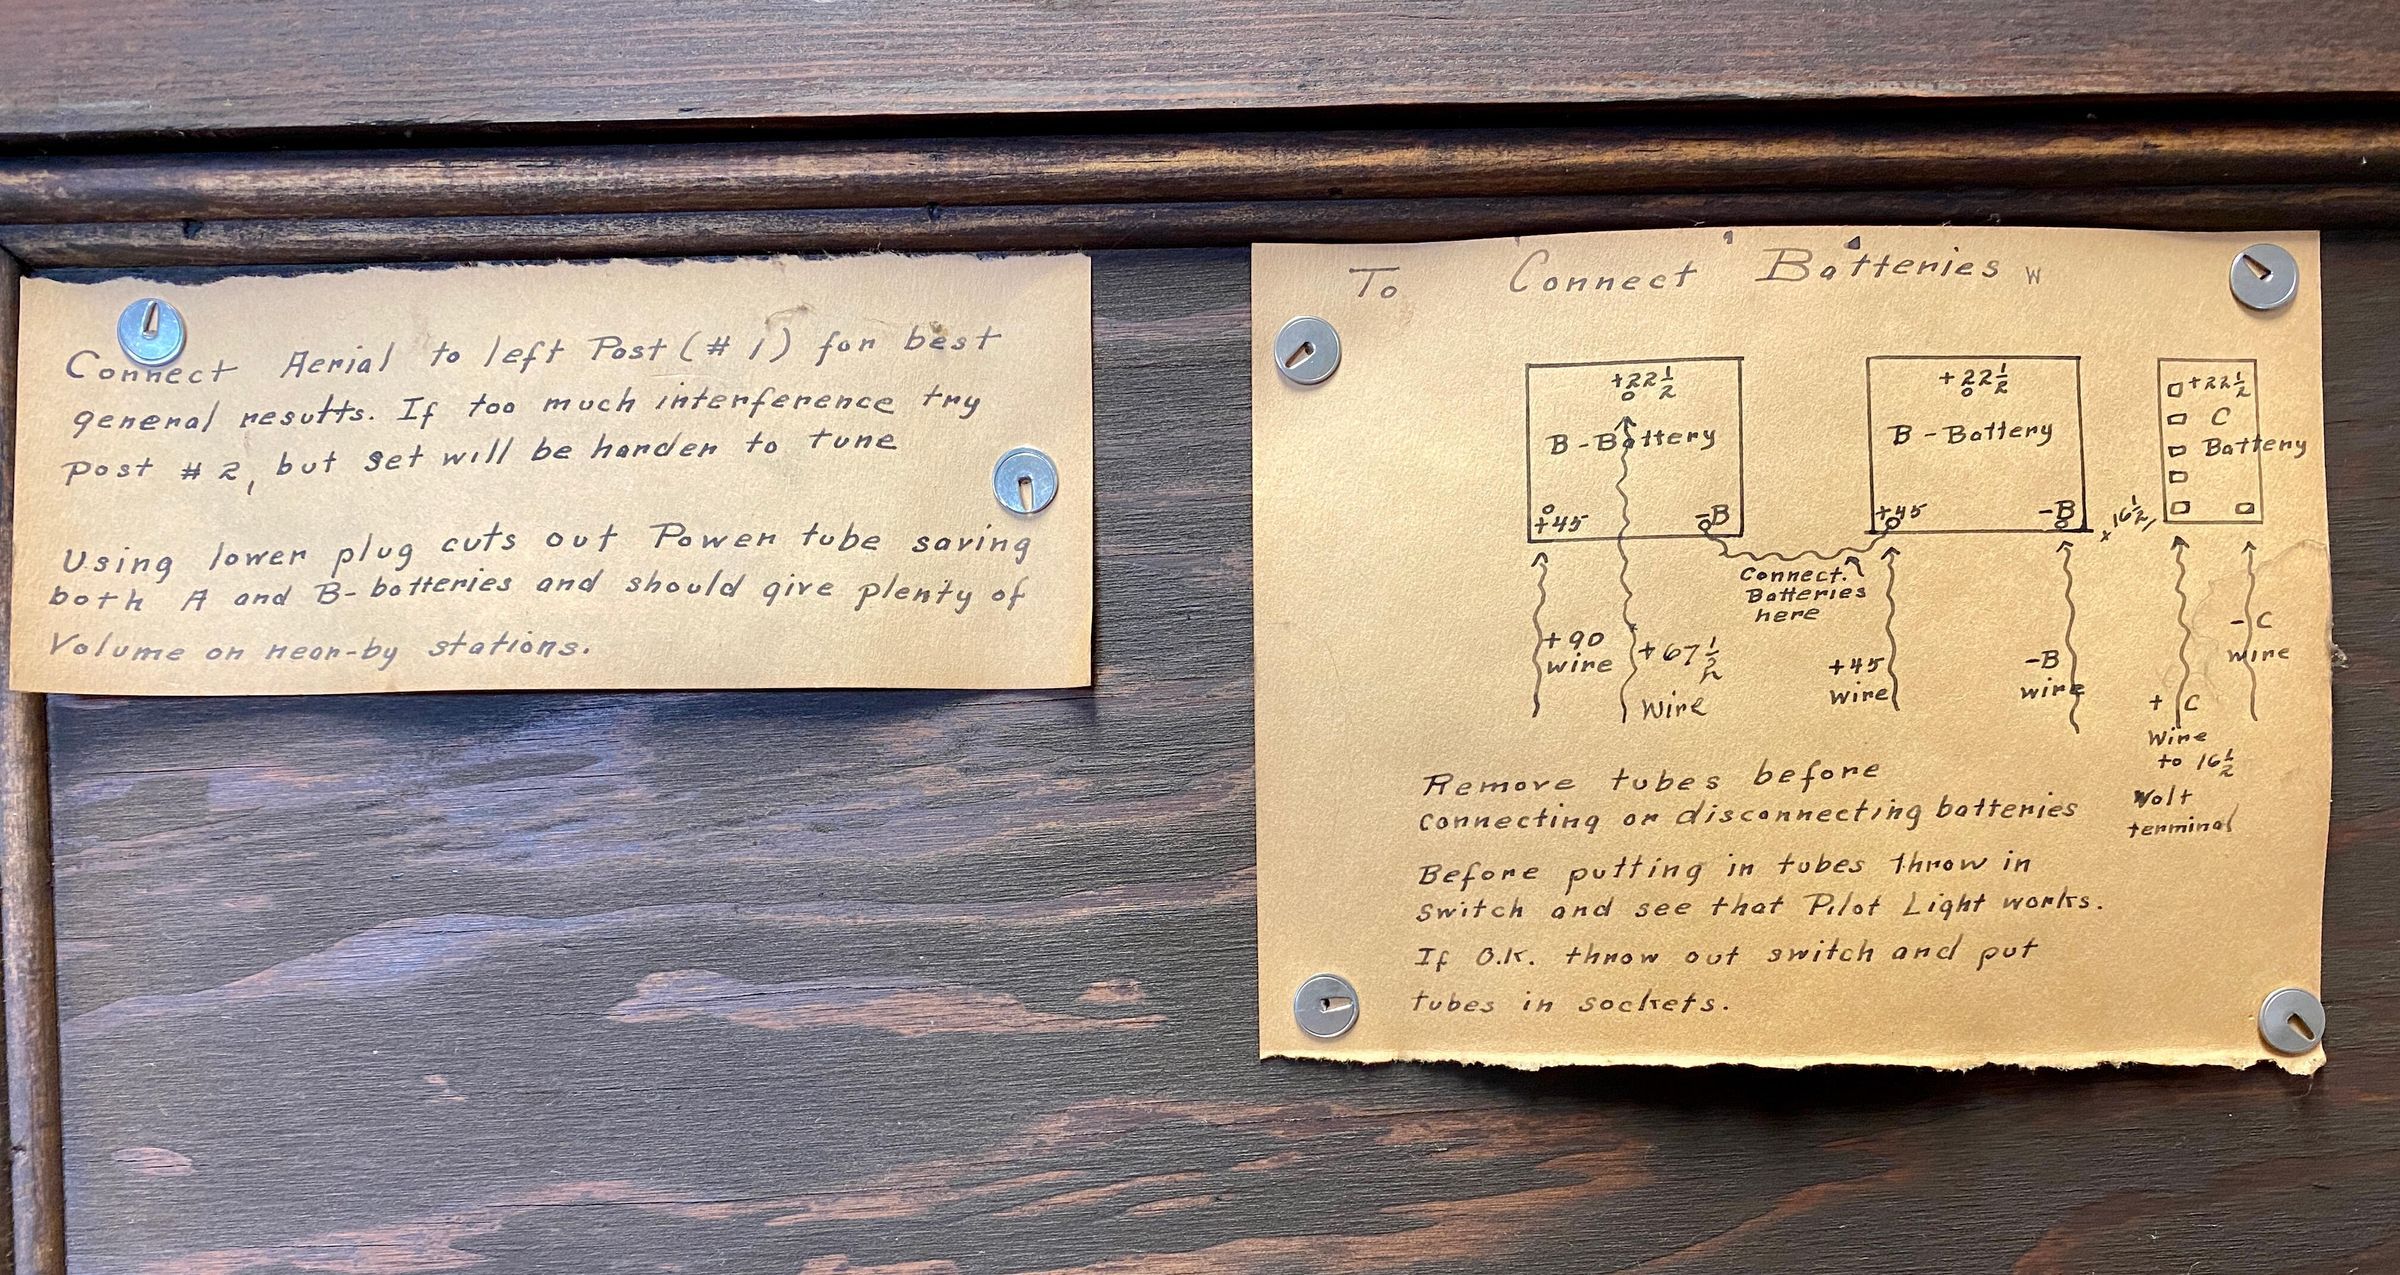 Connect Aerial to left Post (# 1) for best
general results. If too much interference try
post # 2, but set will be harder to tune
Using lower plug cuts out Power tube saving
both A and B-batteries and should give plenty of
Volume on near-by stations.
To Connect Batteries W
+22 1/2
B-Battery
+45
-B
+22 1/2
B-Battery
+45
-B
+22 1/2
C
Battery
+16 1/2
Connect
Batteries
here
+90
wire
+67 1/2
Wire
+45
wire
-B
wire
+ C
Wire
to 16 1/2
Volt
terminal
- C
wire
Remove tubes before
connecting or disconnecting batteries
Before putting in tubes throw in
switch and see that Pilot Light works.
If O.K. throw out switch and put
tubes in sockets.